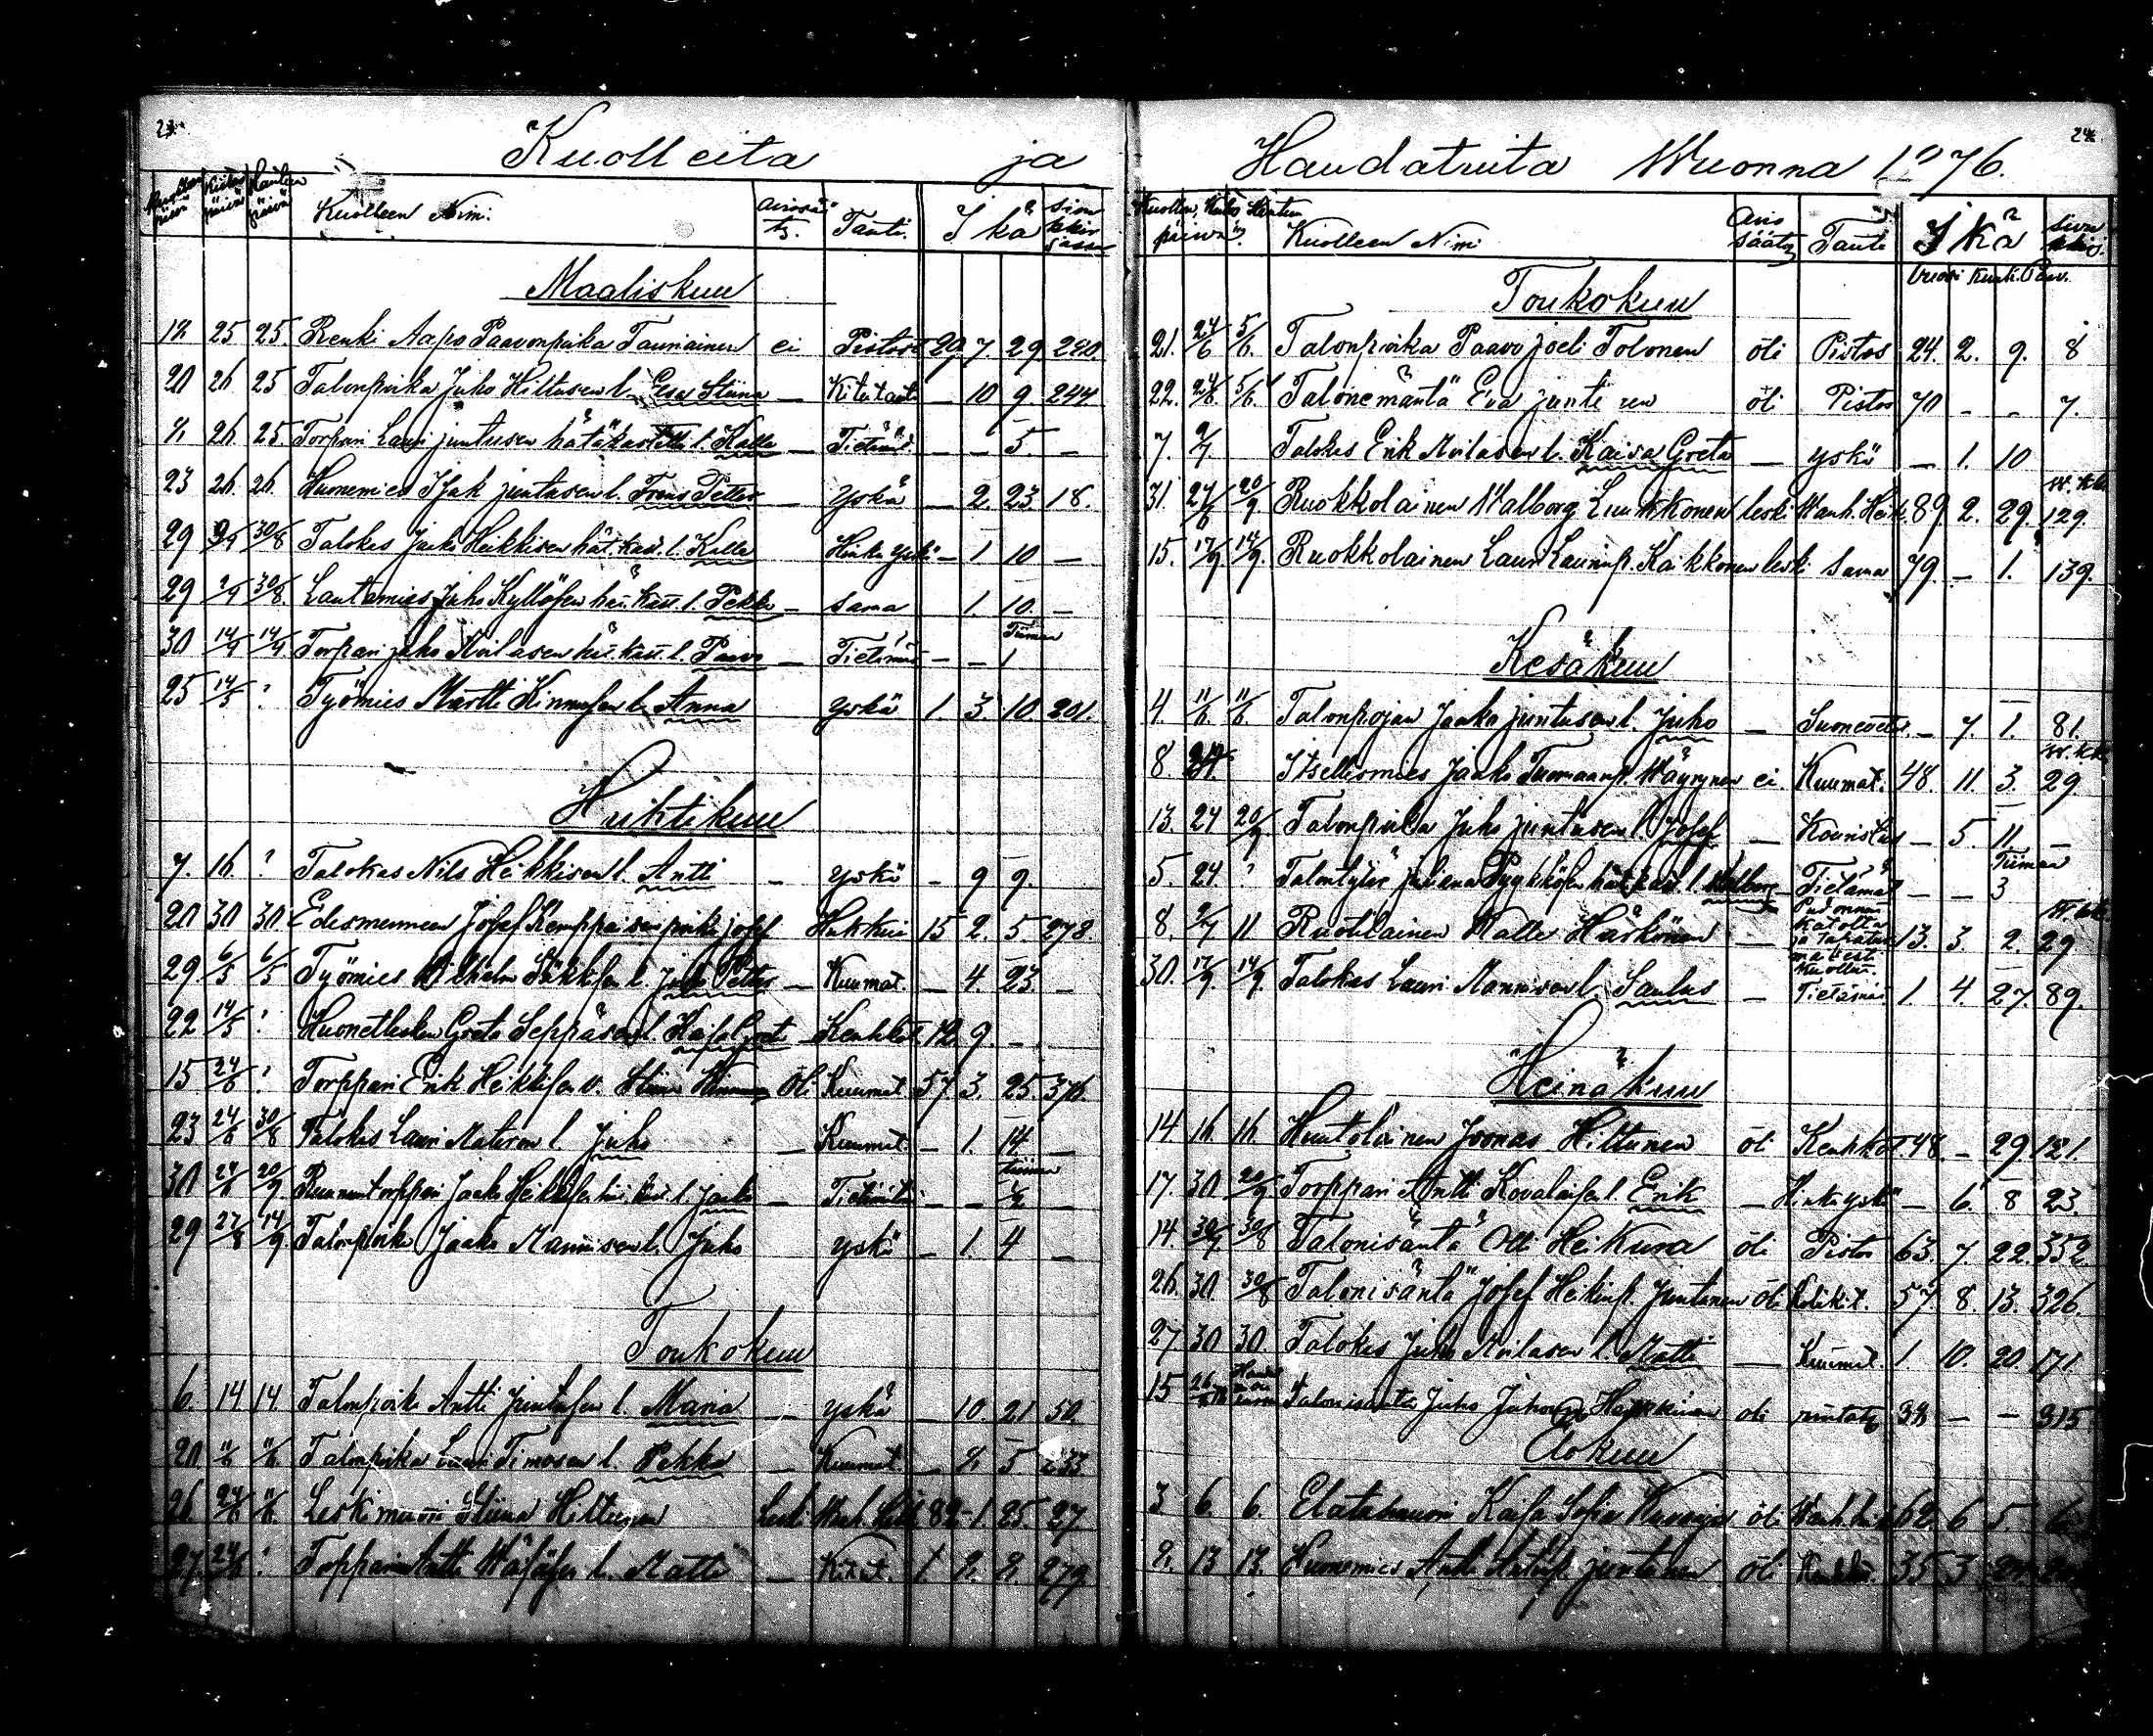 Kuolleita ja
Kuolleen Nimi. Tauti. Ikä
Maaliskuu
12 25 25. Renki Aapo Paavonpoika Tauriainen ei Pistos 29 7. 29. 240.
20 26 25 Talonpoika Juho Hiltusen l. Eva Stiina — Kitutauti — 10 9 244.
2. 26 25. Torpari Lauri juntusen hätäkastettu l. Kalle — Tietämät. — — 5. —
23 26. 26. Huonemies Isak juntusen l. Frans Petter — Yskä — 2. 23 18.
29 30/8 Talokas Jaako Heikkisen hät. kast. l. Kalle Hinku yskä — 1. 10 —
29 2/9 30/8. Lautamies Juho Kyllösen hät. kast. l. Pekka — sama 1. 10. —
30 14/9 14/9 Torpari juho Moilasen hät. kast. l. Paavo — Tietämät — — 1 Tiiman
25 14/5 ? Työmies Martti Kinnusen l. Anna Yskä 1 3. 10 201.
Huhtikuu
7. 16 ? Talokas Nils Heikkisen l. Antti — yskä — 9 9.
20 30 30 Edesmenneen Josef Kemppaisen poika josef Hukkui 15 2. 5. 278.
29. 6/5 6/5 Työmies Wilhelm Säkkisen l. Juho Petter — Kuumat. — 4. 23 —
22 14/5 ? Huonetlesken Greta Seppäsen l. Kaisa Greta — Keuhkot. 12 9 —
15. 24/6 ? Torppari Erik Heikkisen v. Stiina öli Kuumat. 57 3. 25. 376.
23 24/6 30/8 Talokas Lauri Materon l. Juho — Kuumat. — 1. 14. —
30 24/6 20/9. Ruununtorppari Jaako Heikkisen hät. kast. l. Jaako — Tietämät. — — 1/2 tiiman —
29 27/8 14/9 Talonpoika Jaako Mannisen l. Juho yskä — 1. 4 —
Toukokuu
6. 14 14. Talonpoika Antti Juntusen l. Maria — yskä — 10. 21 50.
20. 11/6 11/6 Talonpoika Lauri Timosen l. Pekka — Kuumat. — 2. 5. 233.
26. 24/6 11/6. Leskimuori Stiina Hiltunen Leski Wanh. heik. 82 1. 25. 27.
27. 24/6 ? Torppari Antti Wäisäsen l. Matti — Kitut. 1. 2. 2. 279.
Haudatuita Wuonna 1876.
Kuollen päiwä. Kuolleen Nimi Avio sääty Tauti Ikä
Vuosi Kuuk. Päiv.
Toukokuu
21. 24/6 5/6. Talonpoika Paavo joeli Tolonen öli Pistos 24. 2. 9. 8
22. 24/6. 5/6. Talonemäntä Eva juntinen öli Pistos 70 — — 7.
7. 9/7 Talokas Erik Moilasen l. Kaisa Greta — yskä — 1. 10
31. 24/6 20/9 Ruokkolainen Walborg Luukkonen leski Wanh. Heik. 89. 2. 29. 129.
15. 17/9. 14/9. Ruokkolainen Lauri Laurinp. Kaikkonen leski sama 79. — 1. 139.
Kesäkuu
4. 11/6. 11/6. Talonpojan Jaako juntusen l. Juho — Suonevet. — 7. 1. 81.
8. Itsellismies Jaako Tuomaanp. Wäyrynen ei. Kuumat. 48. 11. 3. 29.
13. 24 20/9 Talonpoika Juho juntusen l. Josef — Kouristus — 5. 11. —
5. 24. ? Talontytär juliana Pyykkösen hät. kast. l. Walborg — Tietämät — — 3 Tiiman
8. 9/7 11. Ruotilainen Kalle Härkönen — Pudonnut katolta ja tapaturmaisest. kuollut. 13. 3. 2. 29
30. 17/9. 14/9. Talokas Lauri Mannisen l. Paulus — Tietämät. 1 4. 27. 89.
Heinäkuu
14 16 16. Huutolainen Joonas Hiltunen öli Keuhkot. 48. — 29. 121.
17. 30 20/9 Torppari Antti Kovalaisen l. Erik — Hink. yskä — 6. 8 23.
14. 30/7 30/8 Talonisäntä Olli Heikura öli Pistos 63. 7. 22. 352.
26. 30 30/8 Talonisäntä Josef Heikinp. Juntunen öli 57 8. 13. 326.
27 30 30. Talokas Juho Moilasen l. Matti — Kuumat. 1. 10. 20. 171.
15 Talonisäntä Juho Juhonp. Heikkinen oli rintat. — — 315.
Elokuu
3 6. 6. Kaisa Sofia öli Wanh. heik. 62. 6 5. 6
2. 13 13. Huonemies Antti Antinp. juntunen öli Keuhkot. 35. 3.